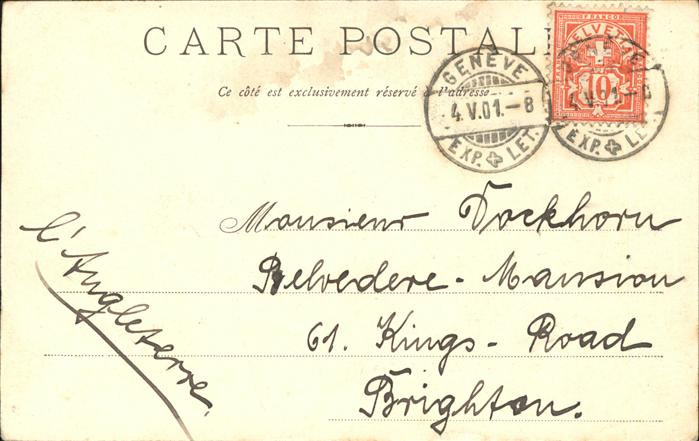 CARTE POSTALE
Ce côté est exclusivement réservé à l'adresse
GENÈVE
4.V.01.–8
EXP. LET.
FRANCO
HELVETIA
10
4.V.01.–8
EXP. LET.
Monsieur Dockhorn
Belvedere - Mansion
61. Kings - Road
Brighton.
l'Angleterre.